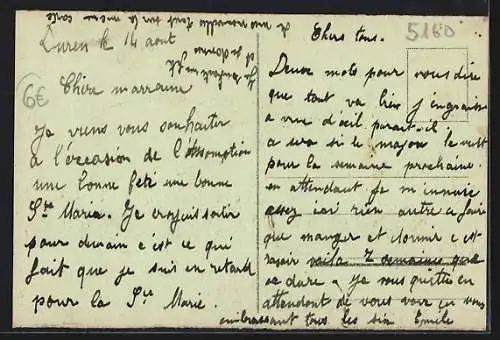 le 14 août
Chère marraine
Je viens vous souhaiter
a l'occasion de l'assomption
une bonne fête une bonne
Ste Maria. Je croyais sortir
pour demain c est ce qui
fait que je suis en retard
pour la Ste Marie.
6€
5160
Chers tous.
Deux mots pour vous dire
que tout va bien j'engraisse
a vue d'œil parait-il
a sera si le major le veut
pour la semaine prochaine.
en attendant je m'ennuie
assez ici rien autre a faire
que manger et dormir c est
voila 2 semaines que
se dure. Je vous quitte en
attendant de vous voir en vous
embrassant tous les six Emile